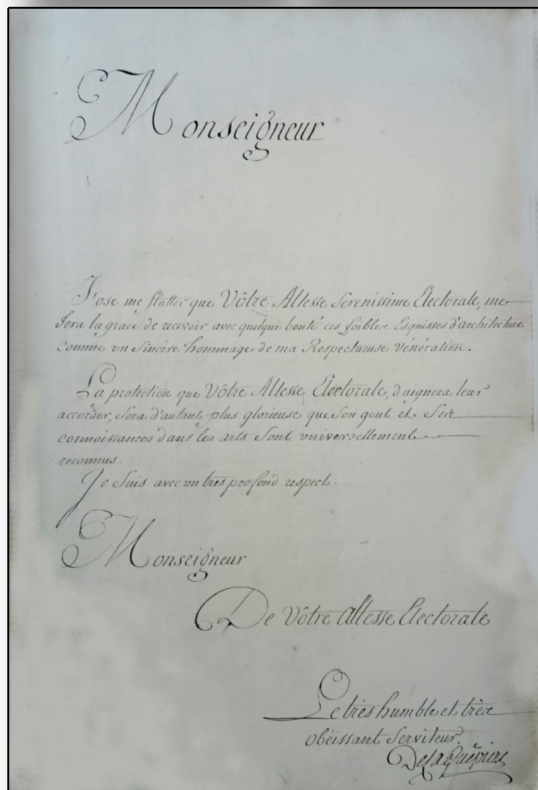 Monseigneur
J'ose me flatter que Vôtre Altesse Serenissime Electorale, me
fera la grace de recevoir avec quelque bonté ces foibles Esquisses d'architecture
comme un Sincère hommage de ma Respectueuse Vénération.
La protection que Vôtre Altesse, Electorale, daignera leur
accorder, Sera d'autant plus glorieuse que Son gout et Ses
connoissances dans les arts Sont universellement
reconnus.
Je Suis avec un très profond respect.
Monseigneur
De Vôtre Altesse Electorale
Le très humble et très
Obëissant Serviteur.